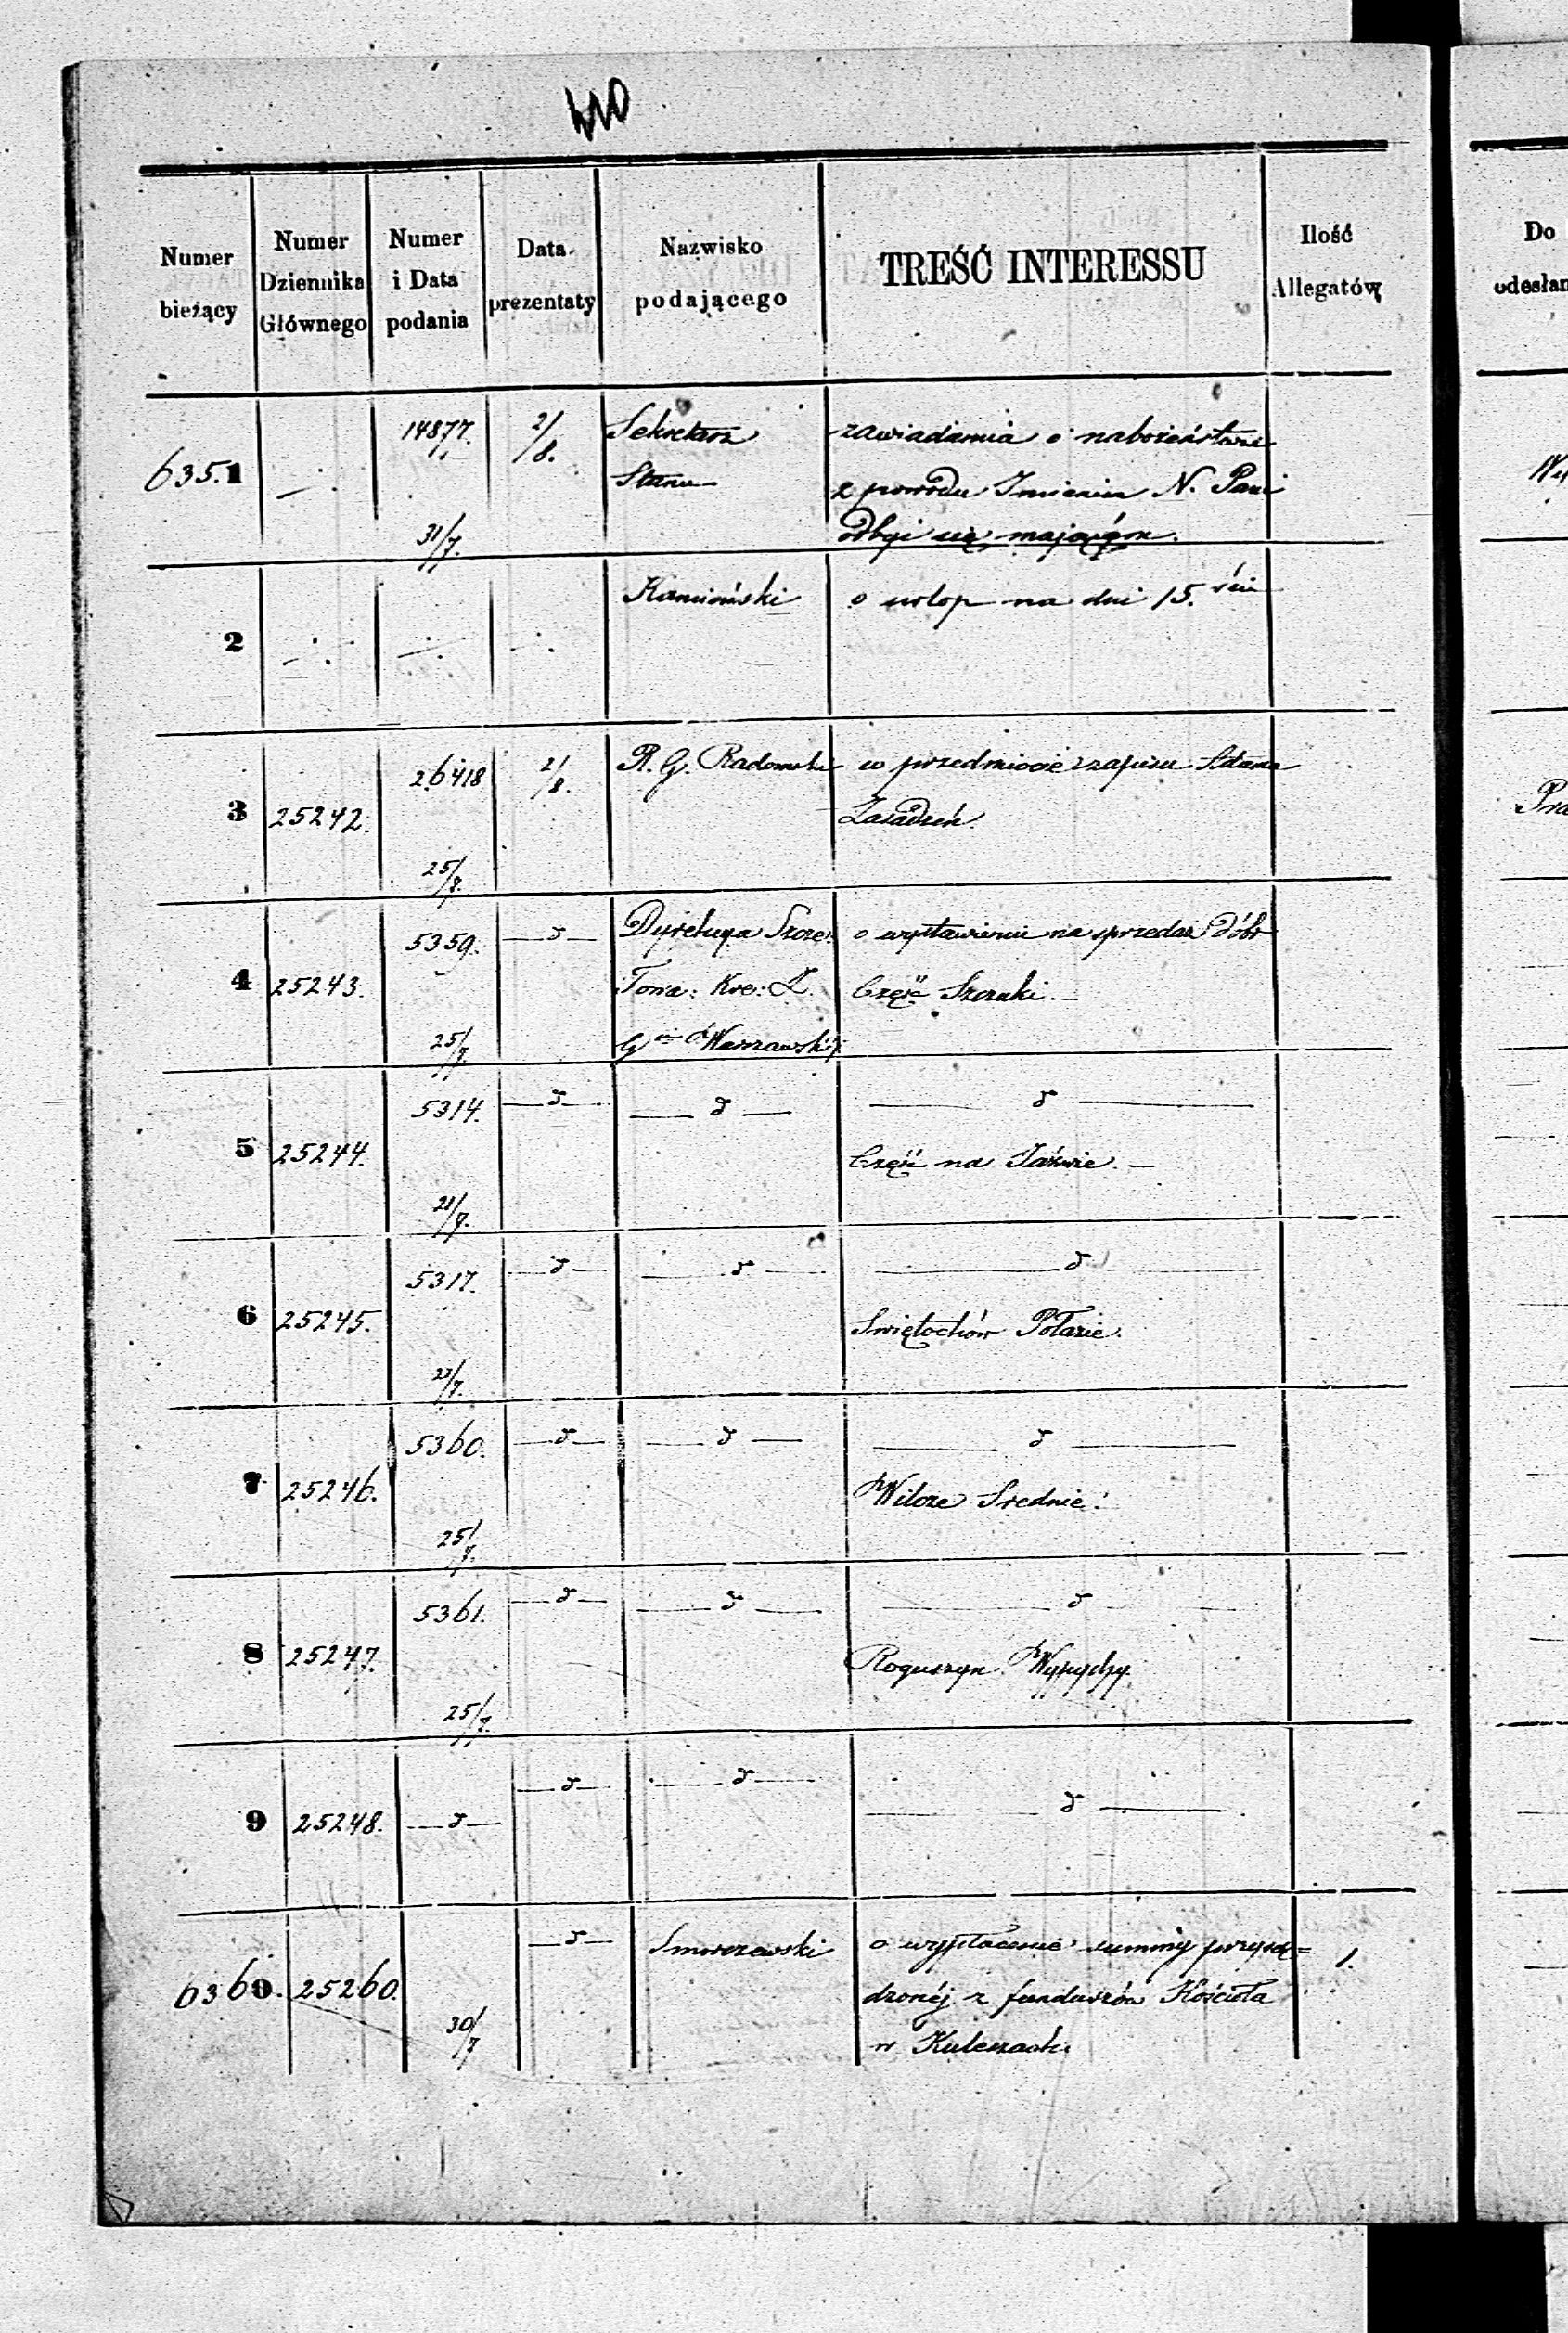 Numer bieżący
Numer Dziennika Głównego
Numer i Data podania
Data prezentaty
Nazwisko podającego
TREŚĆ INTERESSU
Ilość Allegatów
Do
635.1
14877.
31/7.
2/8.
Sekretarz
Stanu
zawiadamia o nabożeństwie
z powodu Imienin N. Pani
odbyć się mającém.
2
Kamiński
o urlop na dni 15.
3
25242.
26418
2/8.
R. G. Radomski
w przedmiocie zapisu Adama
4
25243.
5359.
25/7.
d
Dyrekcya Szcze:
Tow: Kre: Z.
Gii Warszawskiej
o wystawienie na sprzedaż dóbr
Część Szczuki.
5
25244.
5314.
d
d
d
Część na Jaźwie.
6
25245.
5317.
23/7.
d
d
d
Świętochów Połazie.
7
25246.
5360.
25/7.
d
d
d
Wilcze Srednie.
8
25247.
5361.
25/7.
d
d
d
Roguszyn Wypychy.
9
25248.
d
d
d
d
6360.
25260.
30/7
d
o wypłacenie summy przysą=
dzonéj z funduszów Kościoła
w Kuleszach.
1.